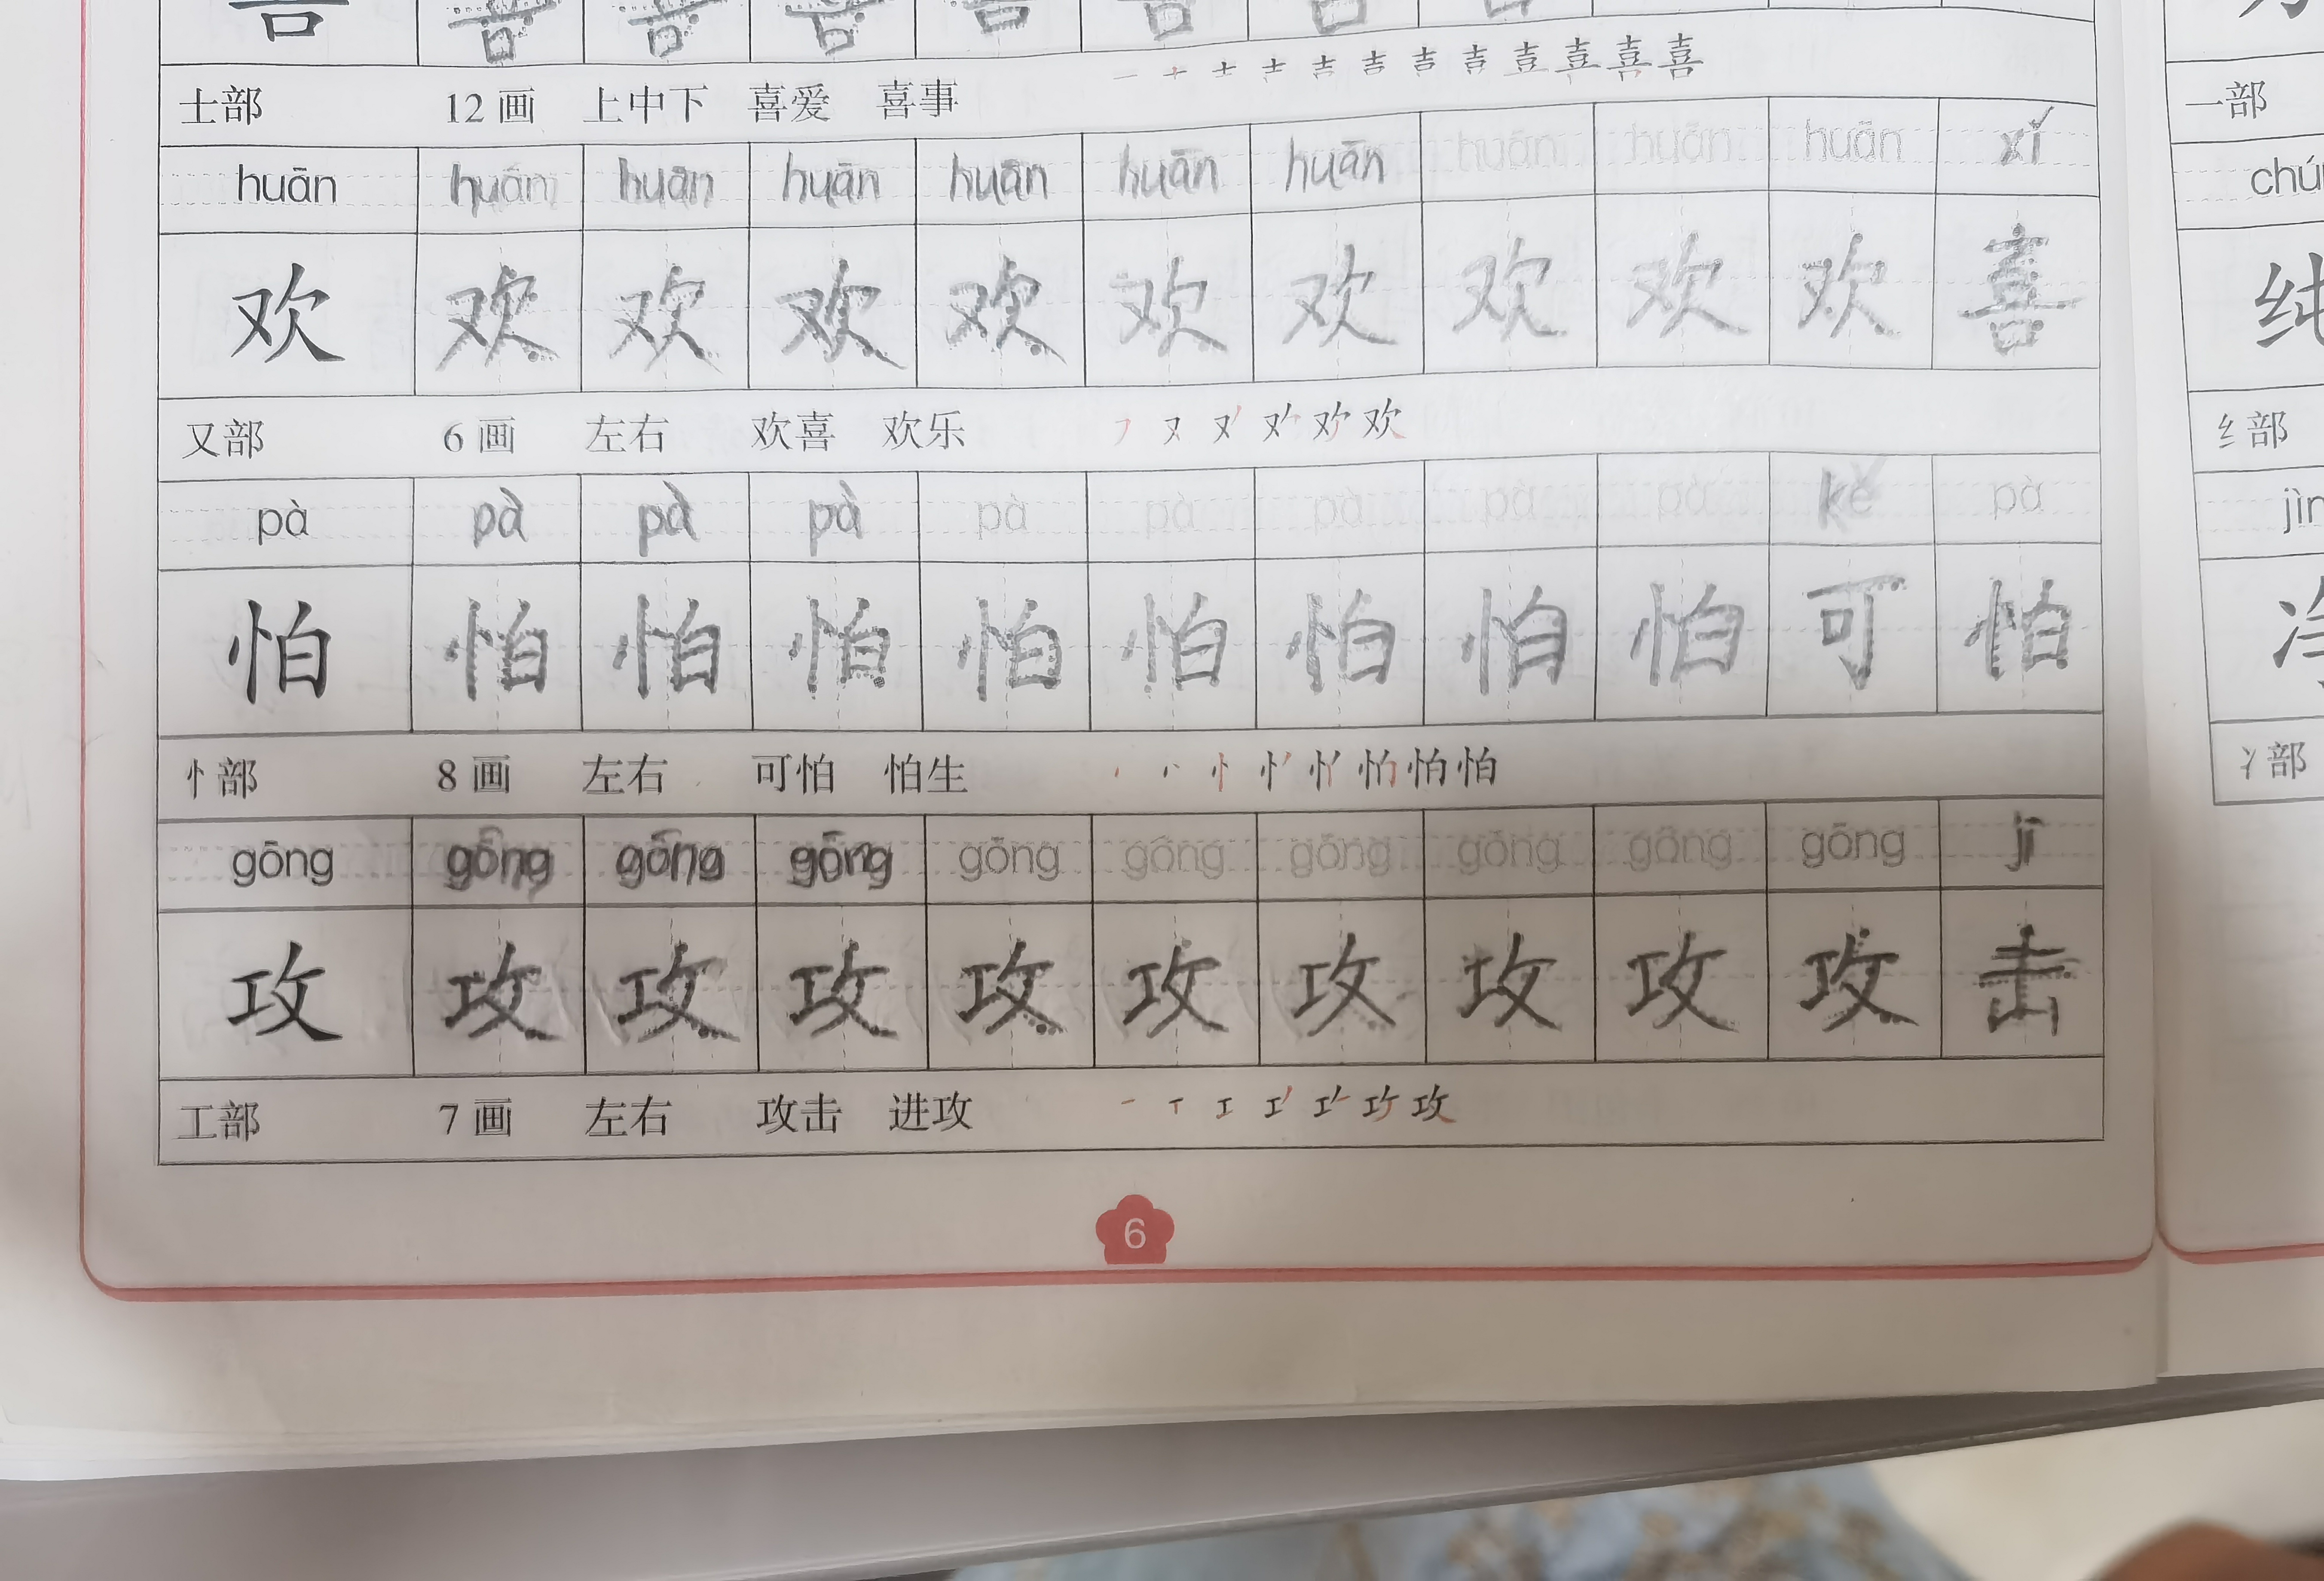 喜 喜 喜 喜 喜 喜 喜
士部 12画 上中下 喜爱 喜事
huān huān huān huān huān huān huān huān huān huān xǐ
欢 欢 欢 欢 欢 欢 欢 欢 欢 欢 喜
又部 6画 左右 欢喜 欢乐
pà pà pà pà pà pà pà pà pà kě pà
怕 怕 怕 怕 怕 怕 怕 怕 怕 可 怕
忄部 8画 左右 可怕 怕生
gōng gōng gōng gōng gōng gōng gōng gōng gōng gōng jī
攻 攻 攻 攻 攻 攻 攻 攻 攻 攻 击
工部 7画 左右 攻击 进攻
6
一部
纯
纟部
净
冫部